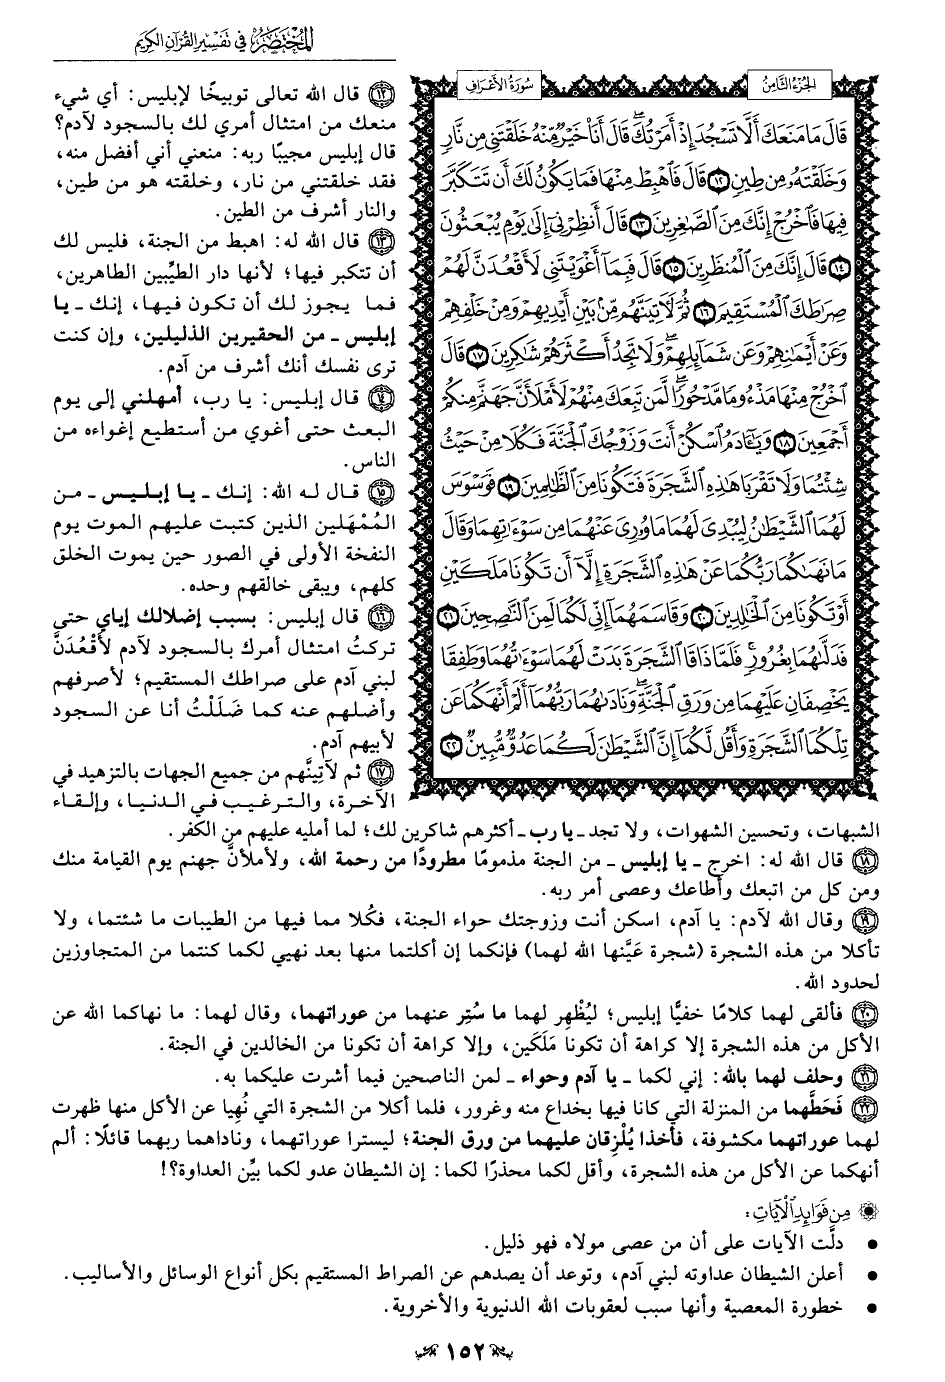 المختصر في تفسير القرآن الكريم
الجزء الثامن
سورة الأعراف
قَالَ مَا مَنَعَكَ أَلَّا تَسْجُدَ إِذْ أَمَرْتُكَ ۖ قَالَ أَنَا۠ خَيْرٌ مِّنْهُ خَلَقْتَنِى مِن نَّارٍ
وَخَلَقْتَهُۥ مِن طِينٍ ١٢ قَالَ فَٱهْبِطْ مِنْهَا فَمَا يَكُونُ لَكَ أَن تَتَكَبَّرَ
فِيهَا فَٱخْرُجْ إِنَّكَ مِنَ ٱلصَّٰغِرِينَ ١٣ قَالَ أَنظِرْنِىٓ إِلَىٰ يَوْمِ يُبْعَثُونَ
١٤ قَالَ إِنَّكَ مِنَ ٱلْمُنظَرِينَ ١٥ قَالَ فَبِمَآ أَغْوَيْتَنِى لَأَقْعُدَنَّ لَهُمْ
صِرَٰطَكَ ٱلْمُسْتَقِيمَ ١٦ ثُمَّ لَءَاتِيَنَّهُم مِّنۢ بَيْنِ أَيْدِيهِمْ وَمِنْ خَلْفِهِمْ
وَعَنْ أَيْمَٰنِهِمْ وَعَن شَمَآئِلِهِمْ ۖ وَلَا تَجِدُ أَكْثَرَهُمْ شَٰكِرِينَ ١٧ قَالَ
ٱخْرُجْ مِنْهَا مَذْءُومًا مَّدْحُورًا ۖ لَّمَن تَبِعَكَ مِنْهُمْ لَأَمْلَأَنَّ جَهَنَّمَ مِنكُمْ
أَجْمَعِينَ ١٨ وَيَٰٓـَٔادَمُ ٱسْكُنْ أَنتَ وَزَوْجُكَ ٱلْجَنَّةَ فَكُلَا مِنْ حَيْثُ
شِئْتُمَا وَلَا تَقْرَبَا هَٰذِهِ ٱلشَّجَرَةَ فَتَكُونَا مِنَ ٱلظَّٰلِمِينَ ١٩ فَوَسْوَسَ
لَهُمَا ٱلشَّيْطَٰنُ لِيُبْدِىَ لَهُمَا مَا وُۥرِىَ عَنْهُمَا مِن سَوْءَٰتِهِمَا وَقَالَ
مَا نَهَىٰكُمَا رَبُّكُمَا عَنْ هَٰذِهِ ٱلشَّجَرَةِ إِلَّآ أَن تَكُونَا مَلَكَيْنِ
أَوْ تَكُونَا مِنَ ٱلْخَٰلِدِينَ ٢٠ وَقَاسَمَهُمَآ إِنِّى لَكُمَا لَمِنَ ٱلنَّٰصِحِينَ ٢١
فَدَلَّىٰهُمَا بِغُرُورٍ ۚ فَلَمَّا ذَاقَا ٱلشَّجَرَةَ بَدَتْ لَهُمَا سَوْءَٰتُهُمَا وَطَفِقَا
يَخْصِفَانِ عَلَيْهِمَا مِن وَرَقِ ٱلْجَنَّةِ ۖ وَنَادَىٰهُمَا رَبُّهُمَآ أَلَمْ أَنْهَكُمَا عَن
تِلْكُمَا ٱلشَّجَرَةِ وَأَقُل لَّكُمَآ إِنَّ ٱلشَّيْطَٰنَ لَكُمَا عَدُوٌّ مُّبِينٌ ٢٢
١٢ قال الله تعالى توبيخًا لإبليس: أي شيء
منعك من امتثال أمري لك بالسجود لآدم؟
قال إبليس مجيبًا ربه: منعني أني أفضل منه،
فقد خلقتني من نار، وخلقته هو من طين،
والنار أشرف من الطين.
١٣ قال الله له: اهبط من الجنة، فليس لك
أن تتكبر فيها؛ لأنها دار الطيِّبين الطاهرين،
فما يجوز لك أن تكون فيها، إنك ـ يا
إبليس ـ من الحقيرين الذليلين، وإن كنت
ترى نفسك أنك أشرف من آدم.
١٤ قال إبليس: يا رب، أمهلني إلى يوم
البعث حتى أغوي من أستطيع إغواءه من
الناس.
١٥ قال له الله: إنك ـ يا إبليس ـ من
المُمْهَلين الذين كتبت عليهم الموت يوم
النفخة الأولى في الصور حين يموت الخلق
كلهم، ويبقى خالقهم وحده.
١٦ قال إبليس: بسبب إضلالك إياي حتى
تركتُ امتثال أمرك بالسجود لآدم لأقْعُدَنَّ
لبني آدم على صراطك المستقيم؛ لأصرفهم
وأضلهم عنه كما ضَلَلْتُ أنا عن السجود
لأبيهم آدم.
١٧ ثم لآتِيَنَّهم من جميع الجهات بالتزهيد في
الآخرة، والترغيب في الدنيا، وإلقاء
الشبهات، وتحسين الشهوات، ولا تجد ـ يا رب ـ أكثرهم شاكرين لك؛ لما أمليه عليهم من الكفر.
١٨ قال الله له: اخرج ـ يا إبليس ـ من الجنة مذمومًا مطرودًا من رحمة الله، ولأملأنَّ جهنم يوم القيامة منك
ومن كل من اتبعك وأطاعك وعصى أمر ربه.
١٩ وقال الله لآدم: يا آدم، اسكن أنت وزوجتك حواء الجنة، فكُلا مما فيها من الطيبات ما شئتما، ولا
تأكلا من هذه الشجرة (شجرة عَيَّنها الله لهما) فإنكما إن أكلتما منها بعد نهيي لكما كنتما من المتجاوزين
لحدود الله.
٢٠ فألقى لهما كلامًا خفيًّا إبليس؛ ليُظْهِر لهما ما سُتِر عنهما من عوراتهما، وقال لهما: ما نهاكما الله عن
الأكل من هذه الشجرة إلا كراهة أن تكونا مَلَكَين، وإلا كراهة أن تكونا من الخالدين في الجنة.
٢١ وحلف لهما بالله: إني لكما ـ يا آدم وحواء ـ لمن الناصحين فيما أشرت عليكما به.
٢٢ فَحَطَّهما من المنزلة التي كانا فيها بخداع منه وغرور، فلما أكلا من الشجرة التي نُهِيا عن الأكل منها ظهرت
لهما عوراتهما مكشوفة، فأخذا يُلْزِقان عليهما من ورق الجنة؛ ليسترا عوراتهما، وناداهما ربهما قائلًا: ألم
أنهكما عن الأكل من هذه الشجرة، وأقل لكما محذرًا لكما: إن الشيطان عدو لكما بيِّن العداوة؟!
من فوائد الآيات:
• دلَّت الآيات على أن من عصى مولاه فهو ذليل.
• أعلن الشيطان عداوته لبني آدم، وتوعد أن يصدهم عن الصراط المستقيم بكل أنواع الوسائل والأساليب.
• خطورة المعصية وأنها سبب لعقوبات الله الدنيوية والأخروية.
١٥٢